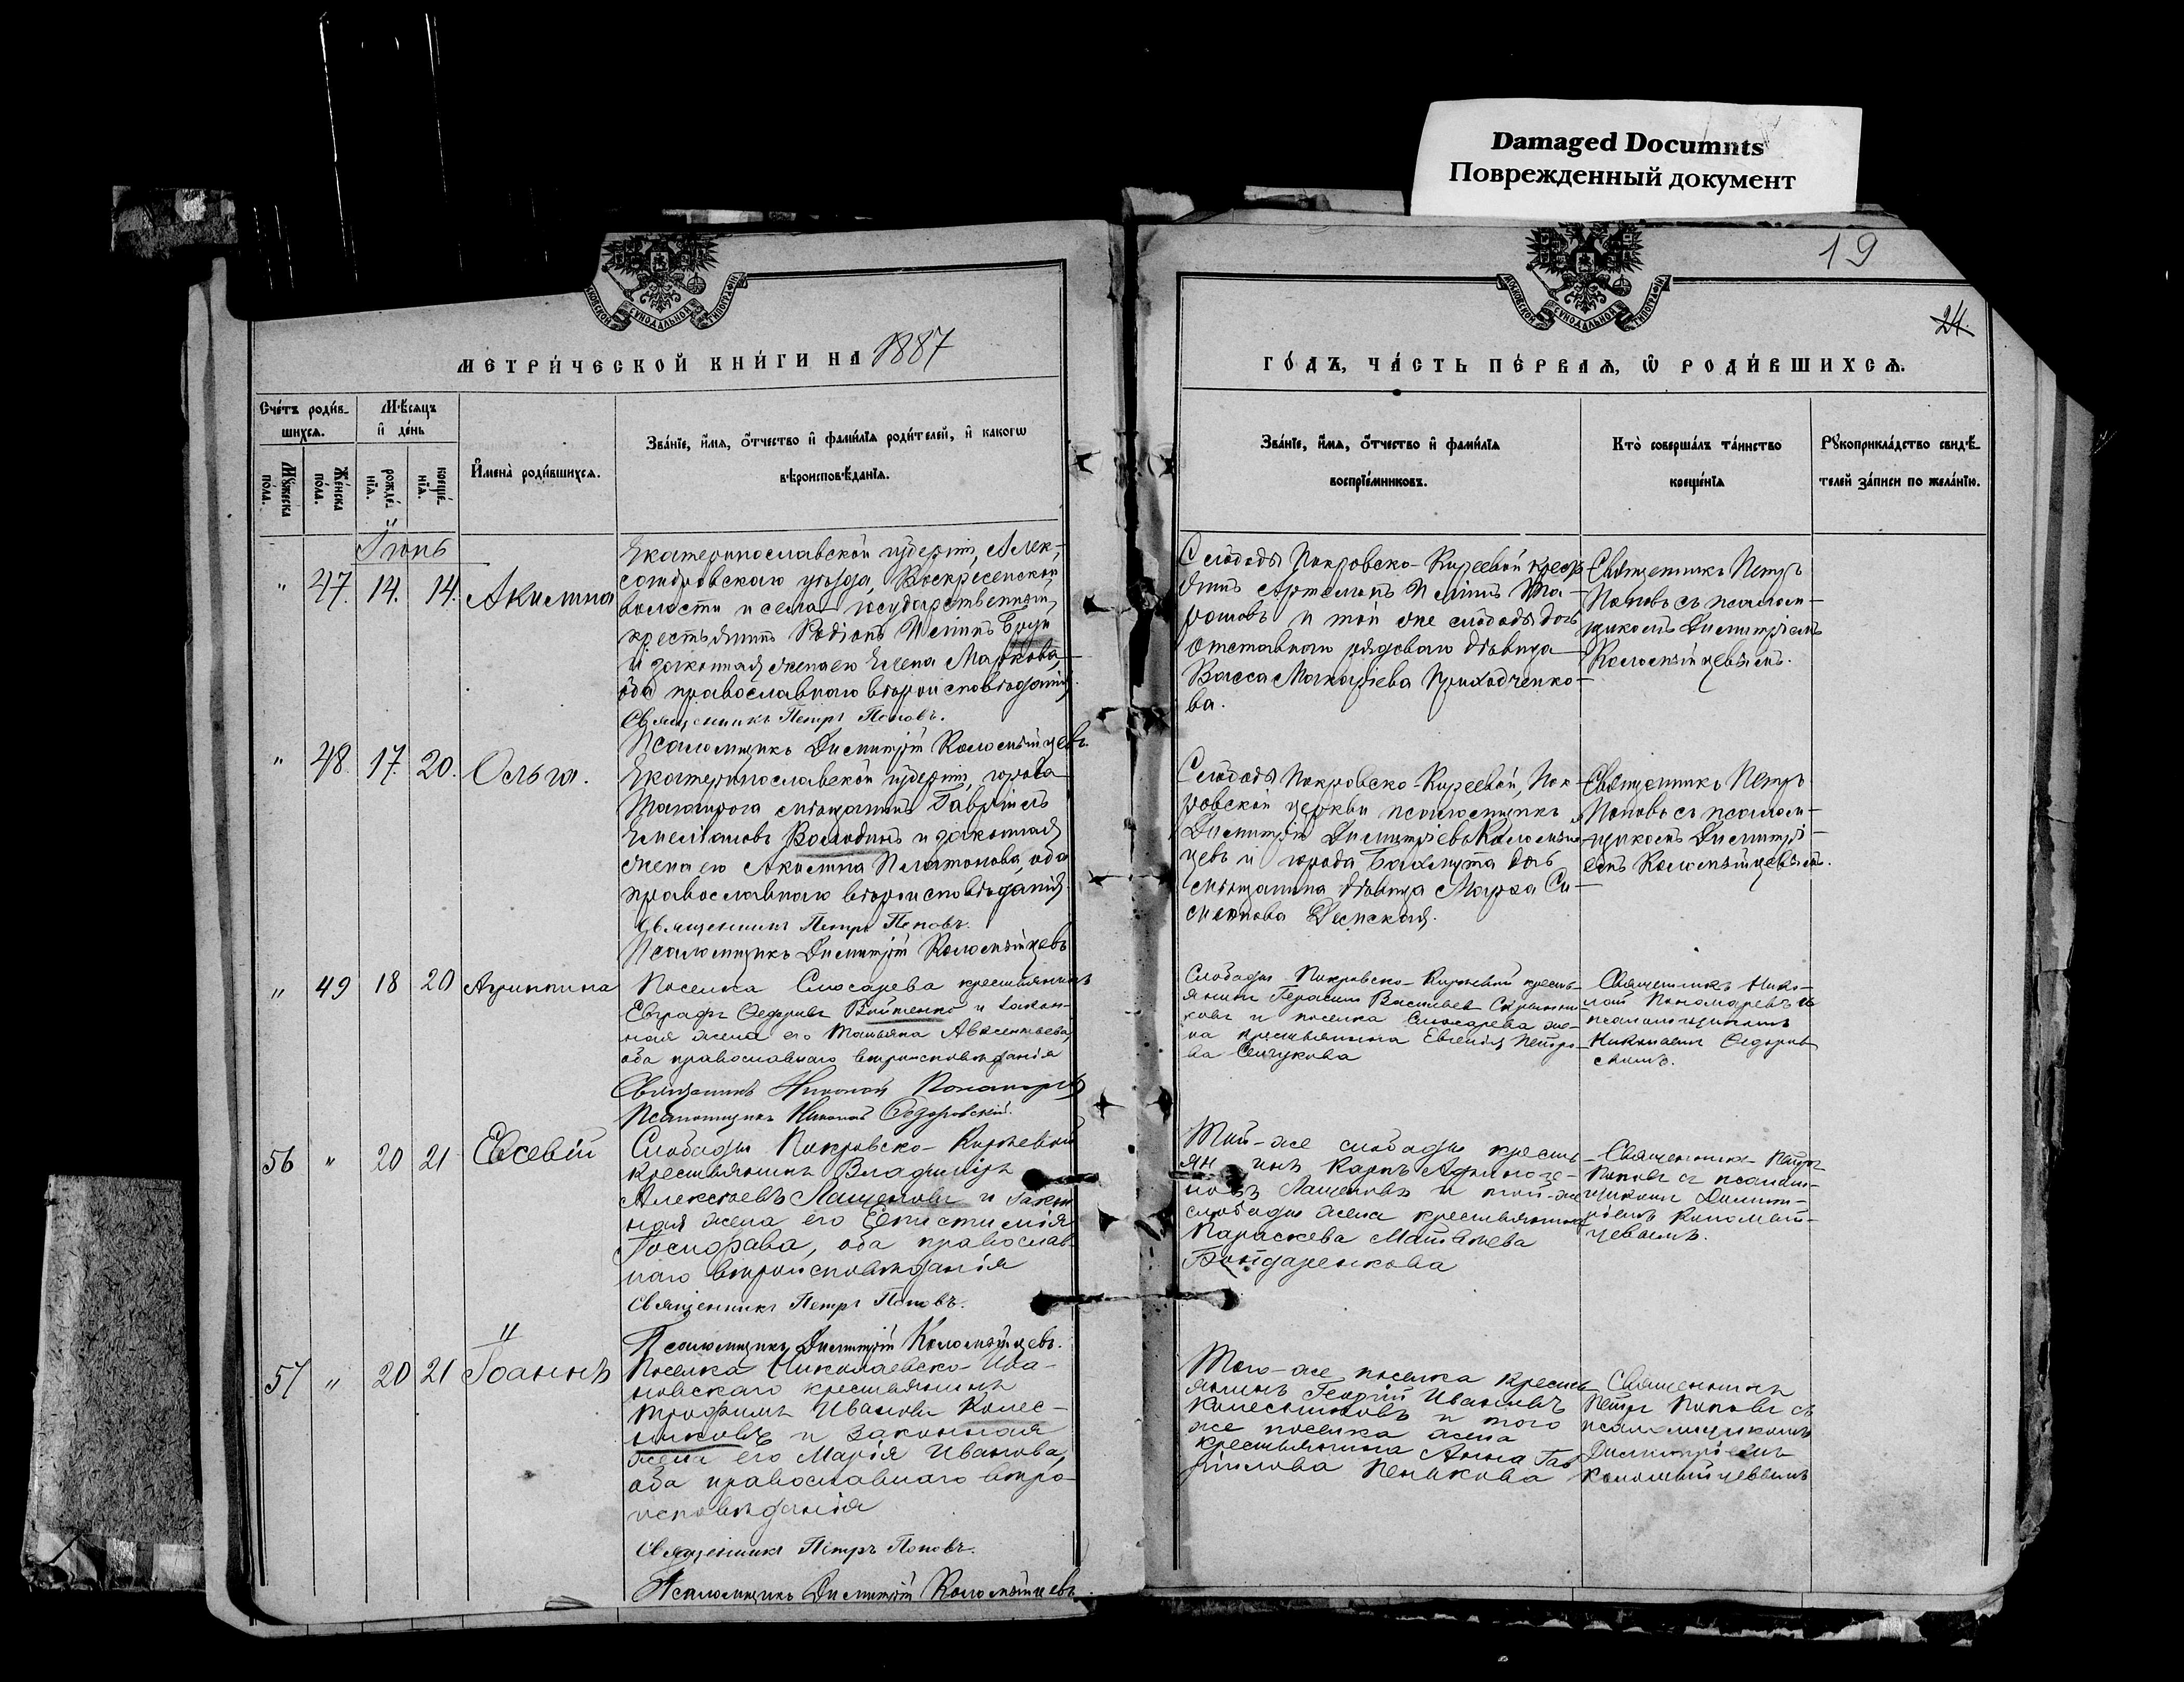 Damaged Documnts
Поврежденный документ
19
24.
МОСКОВСКОЙ СѴНОДАЛЬНОЙ ТИПОГРАФІИ
МОСКОВСКОЙ СѴНОДАЛЬНОЙ ТИПОГРАФІИ
МЕТРИ́ЧЕСКОЙ КНИ́ГИ НА 1887
ГО́ДЪ, ЧА́СТЬ ПЕ́РВАѦ, Ѡ РОДИ́ВШИХСѦ.
Сче́тъ роди́в-
шихсѧ.
Мꙋ́жеска по́ла.
Же́нска по́ла.
Мѣ́сѧцъ
и де́нь
рожде́нїѧ.
креще́нїѧ.
Имена̀ роди́вшихсѧ.
Зва́нїе, и́мѧ, о́тчество и фами́лїѧ роди́телей, и како́гѡ
вѣроисповѣ́данїѧ.
Зва́нїе, и́мѧ, о́тчество и фами́лїѧ
воспрїе́мниковъ.
Кто̀ соверша́лъ та́инство
креще́нїѧ
Рꙋкоприкла́дство свидѣ́-
телей за́писи по жела́нїю.
Іюнь
" 47. 14. 14. Акилина
Екатеринославской губерніи, Алек-
сандровскаго уѣзда, Воскресенской
волости и села государственный
крестьянинъ Родіонъ
и законная жена его Елена Маркова,
оба православнаго вѣроисповѣданія.
Священникъ Петръ Поповъ.
Псаломщикъ Димитрій Коломѣйцевъ.
Слободы Покровско-Киреевой крест
янинъ Артемонъ
и той же слободы дочь
отставнаго рядоваго дѣвица
Васса Макаріева Приходченко-
ва.
Священникъ Петръ
Поповъ съ псалом-
щикомъ Димитріемъ
Коломѣйцевымъ.
" 48. 17. 20. Ольга.
Екатеринославской губерніи, города
Таганрога мѣщанинъ Гавріилъ
Емеліановъ Володинъ и законная
жена его Акилина Платонова, оба
православнаго вѣроисповѣданія.
Священникъ Петръ Поповъ.
Псаломщикъ Димитрій Коломѣйцевъ
Слободы Покровско-Киреевой, Пок-
ровской церкви псаломщикъ
Димитрій Димитріевъ Коломѣй-
цевъ и города Бахмута дочь
мѣщанина дѣвица Марѳа Си-
меонова
Священникъ Петръ
Поповъ съ псалом-
щикомъ Димитрі-
емъ Коломѣйцевымъ.
" 49 18 20 Агриппина
Поселка Слюсарева крестьянинъ
Евграфъ Ѳедоровъ Войтенко и закон-
ная жена его Татьяна Авксентьева,
оба православнаго вѣроисповѣданія
Священникъ Николай Пономаревъ
Псаломщикъ Николай Ѳедоровскій.
Слободы Покровско-Киреевой кресть-
янинъ Герасимъ Васильевъ
ковъ и поселка Слюсарева же-
на крестьянина Евгенія Петро-
ва
Священникъ Нико-
лай Пономаревъ съ
псаломщикомъ
Николаемъ Ѳедоров-
скимъ.
56 " 20 21 Евсевій
Слободы Покровско-Киреевой
крестьянинъ Владиміръ
Алексѣевъ Лащеновъ и закон
ная жена его Еѳистимія
оба православ-
наго вѣроисповѣданія
Священникъ Петръ Поповъ.
Псаломщикъ Димитрій Коломѣйцевъ.
Той-же слободы кресть-
янинъ Карпъ
новъ Лащеновъ и той-же
слободы жена крестьянина
Параскева Матвѣева
Бондаренкова
Священникъ Петръ
Поповъ съ псалом-
щикомъ Димит-
ріемъ Коломѣй-
цевымъ.
57 " 20 21 Іоаннъ
Поселка Николаевско-Ива-
новскаго крестьянинъ
Трофимъ Ивановъ Колес-
никовъ и законная
жена его Марія Иванова,
оба православнаго вѣро-
исповѣданія
Священникъ Петръ Поповъ.
Псаломщикъ Димитрій Коломѣйцевъ.
Того-же поселка кресть-
янинъ Георгій Ивановъ
Колесниковъ и того
же поселка жена
крестьянина Анна Гав
ріилова Пенькова
Священникъ
Петръ Поповъ съ
псаломщикомъ
Димитріемъ
Коломѣйцевымъ